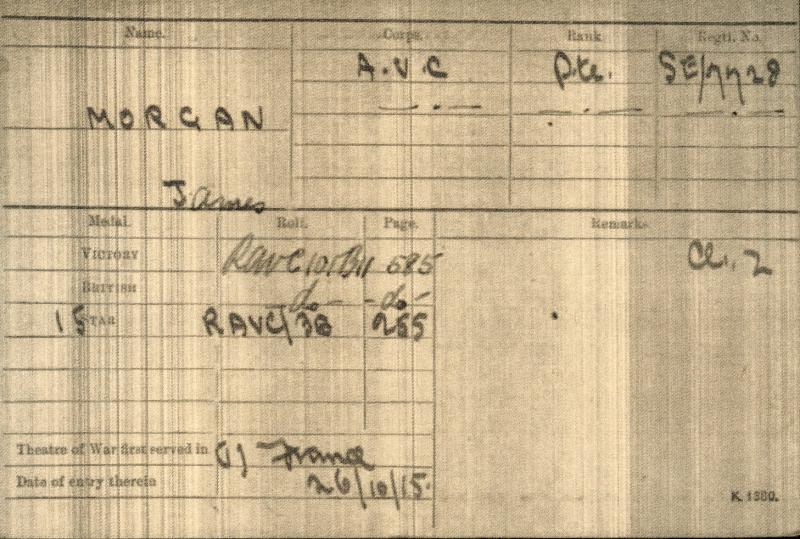 Name. Corps. Rank Regtl. No.
A.V.C Pte. SE/7728
MORGAN — . — — . — — . —
James
Medal. Roll. Page. Remarks
VICTORY RAVC 101 B11 585 Cl. 2
BRITISH do - - do -
15 STAR RAVC/3B 255
Theatre of War first served in (1) France
Date of entry therein 26/10/15.
K. 1380.